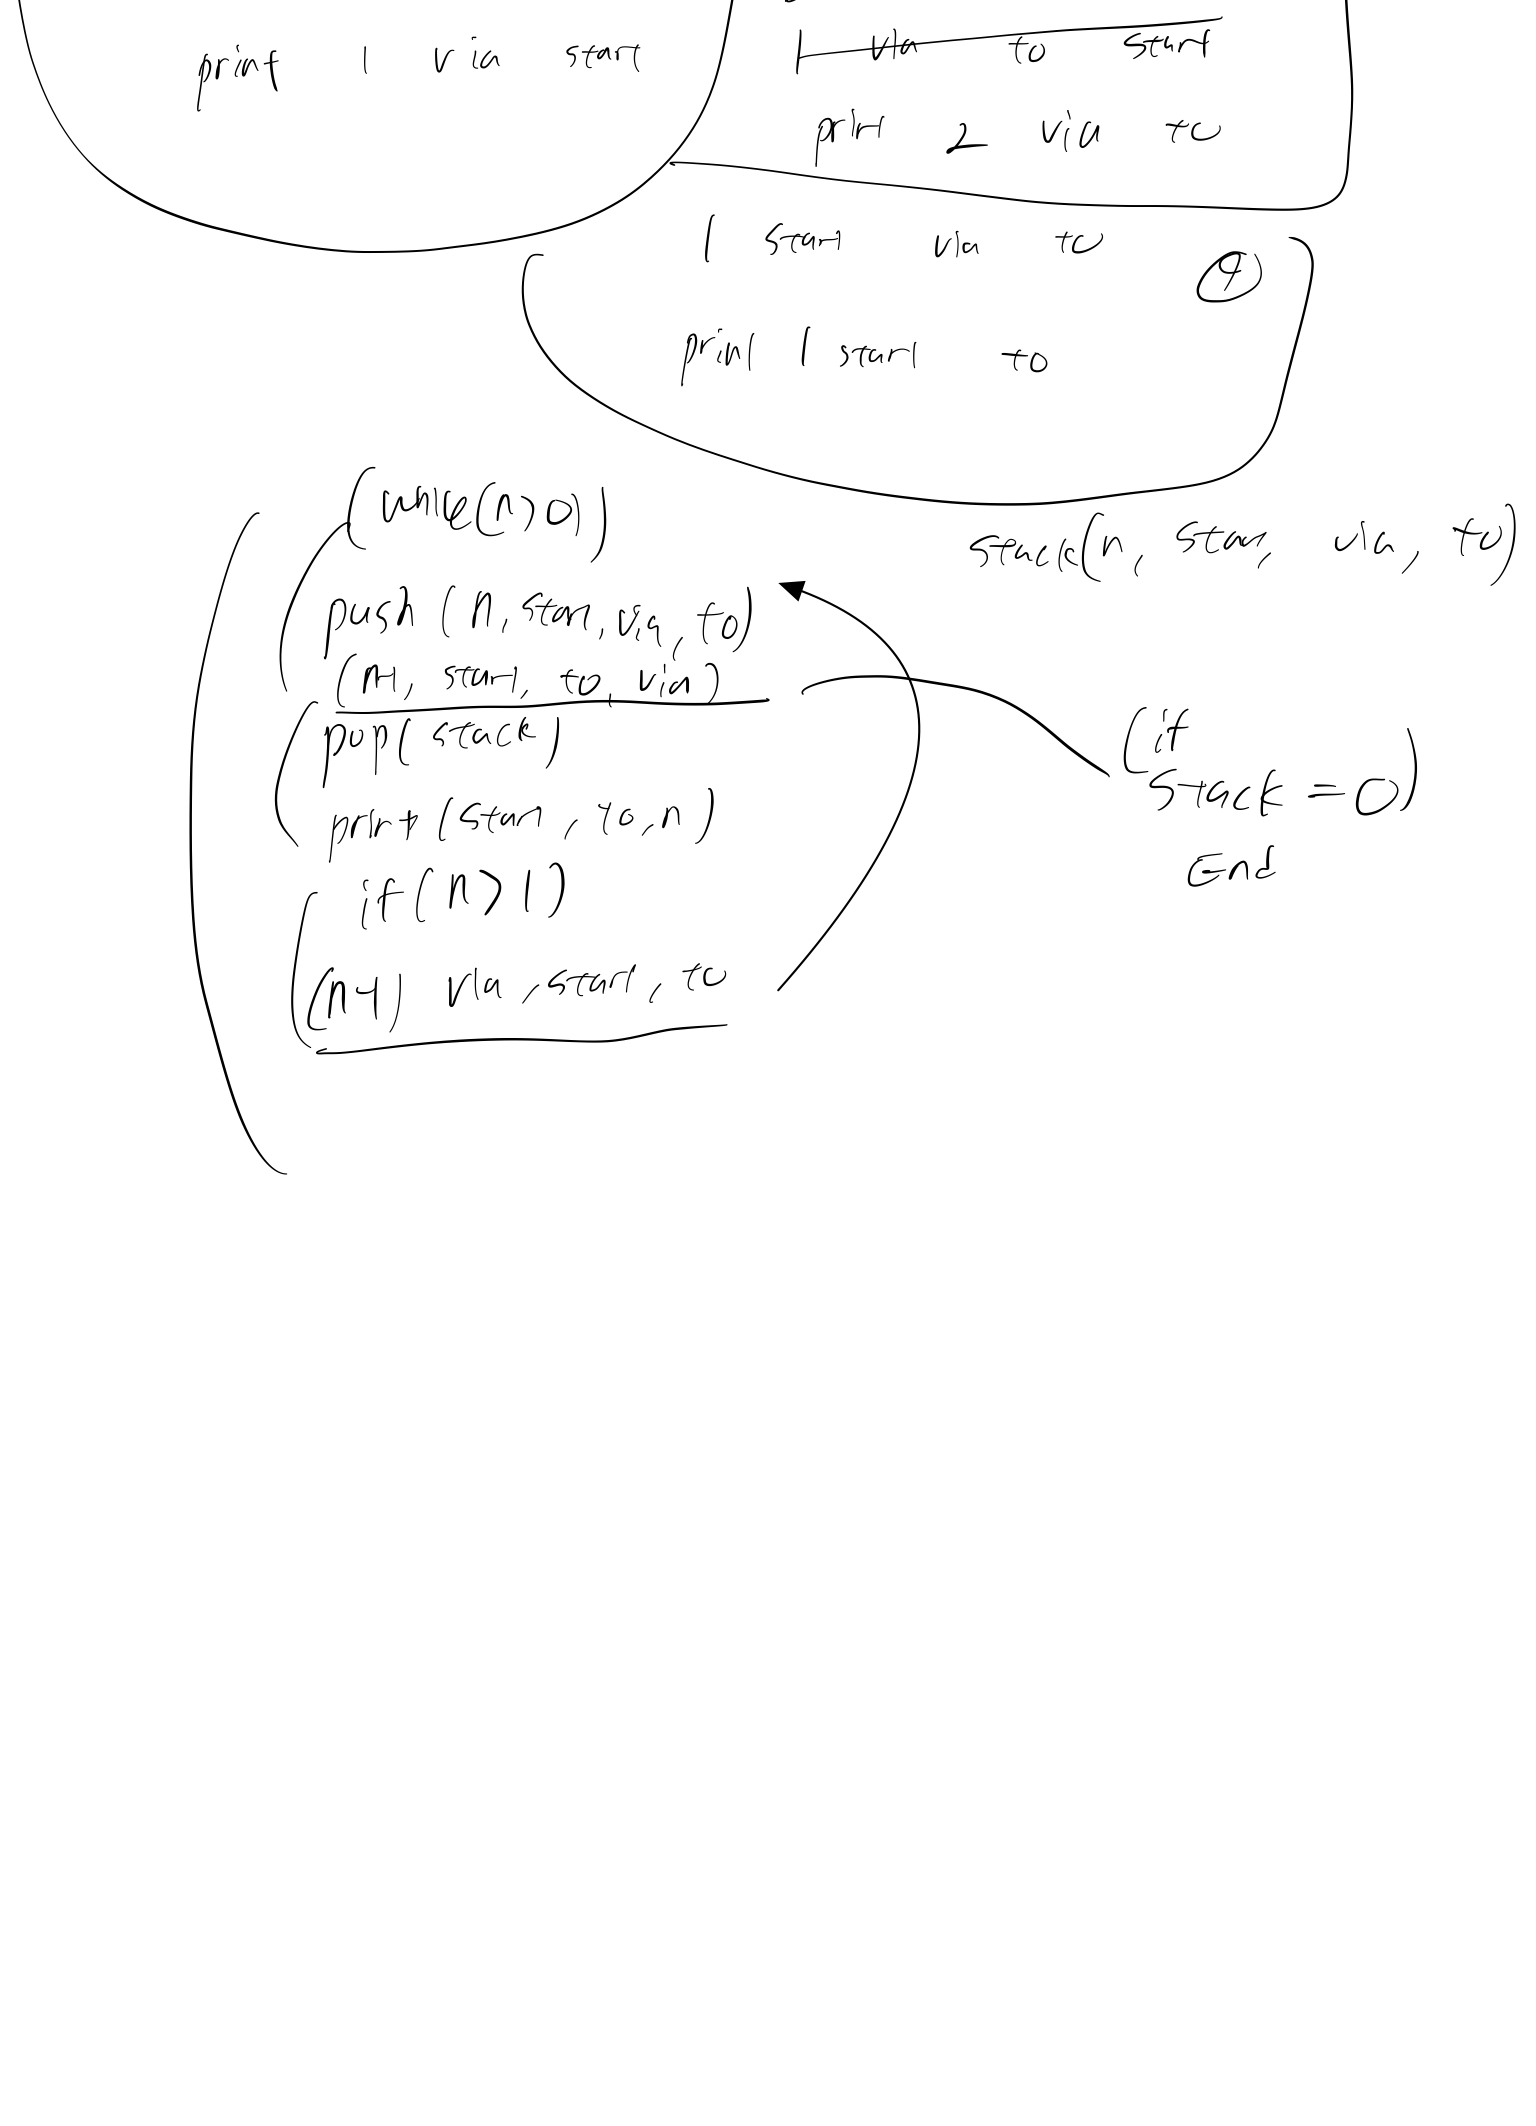 print 1 via start
1 via to start
print 2 via to
1 start via to
④
print 1 start to
(while(n>0))
stack(n, start, via, to)
push (n, start, via, to)
(n-1, start, to, via)
pop( stack)
(if
stack = 0)
End
print (start, to, n)
if(n>1)
(n-1) via, start, to